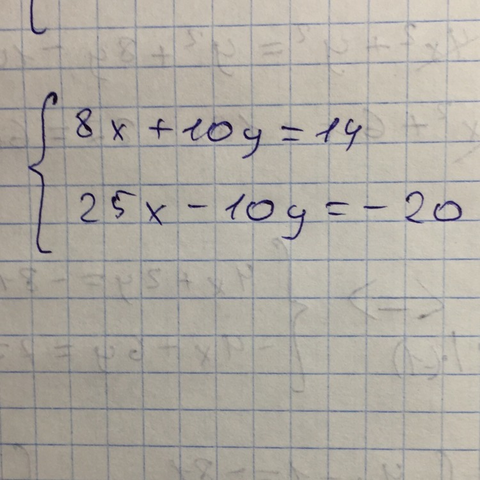 8x + 10y = 14
25x - 10y = - 20